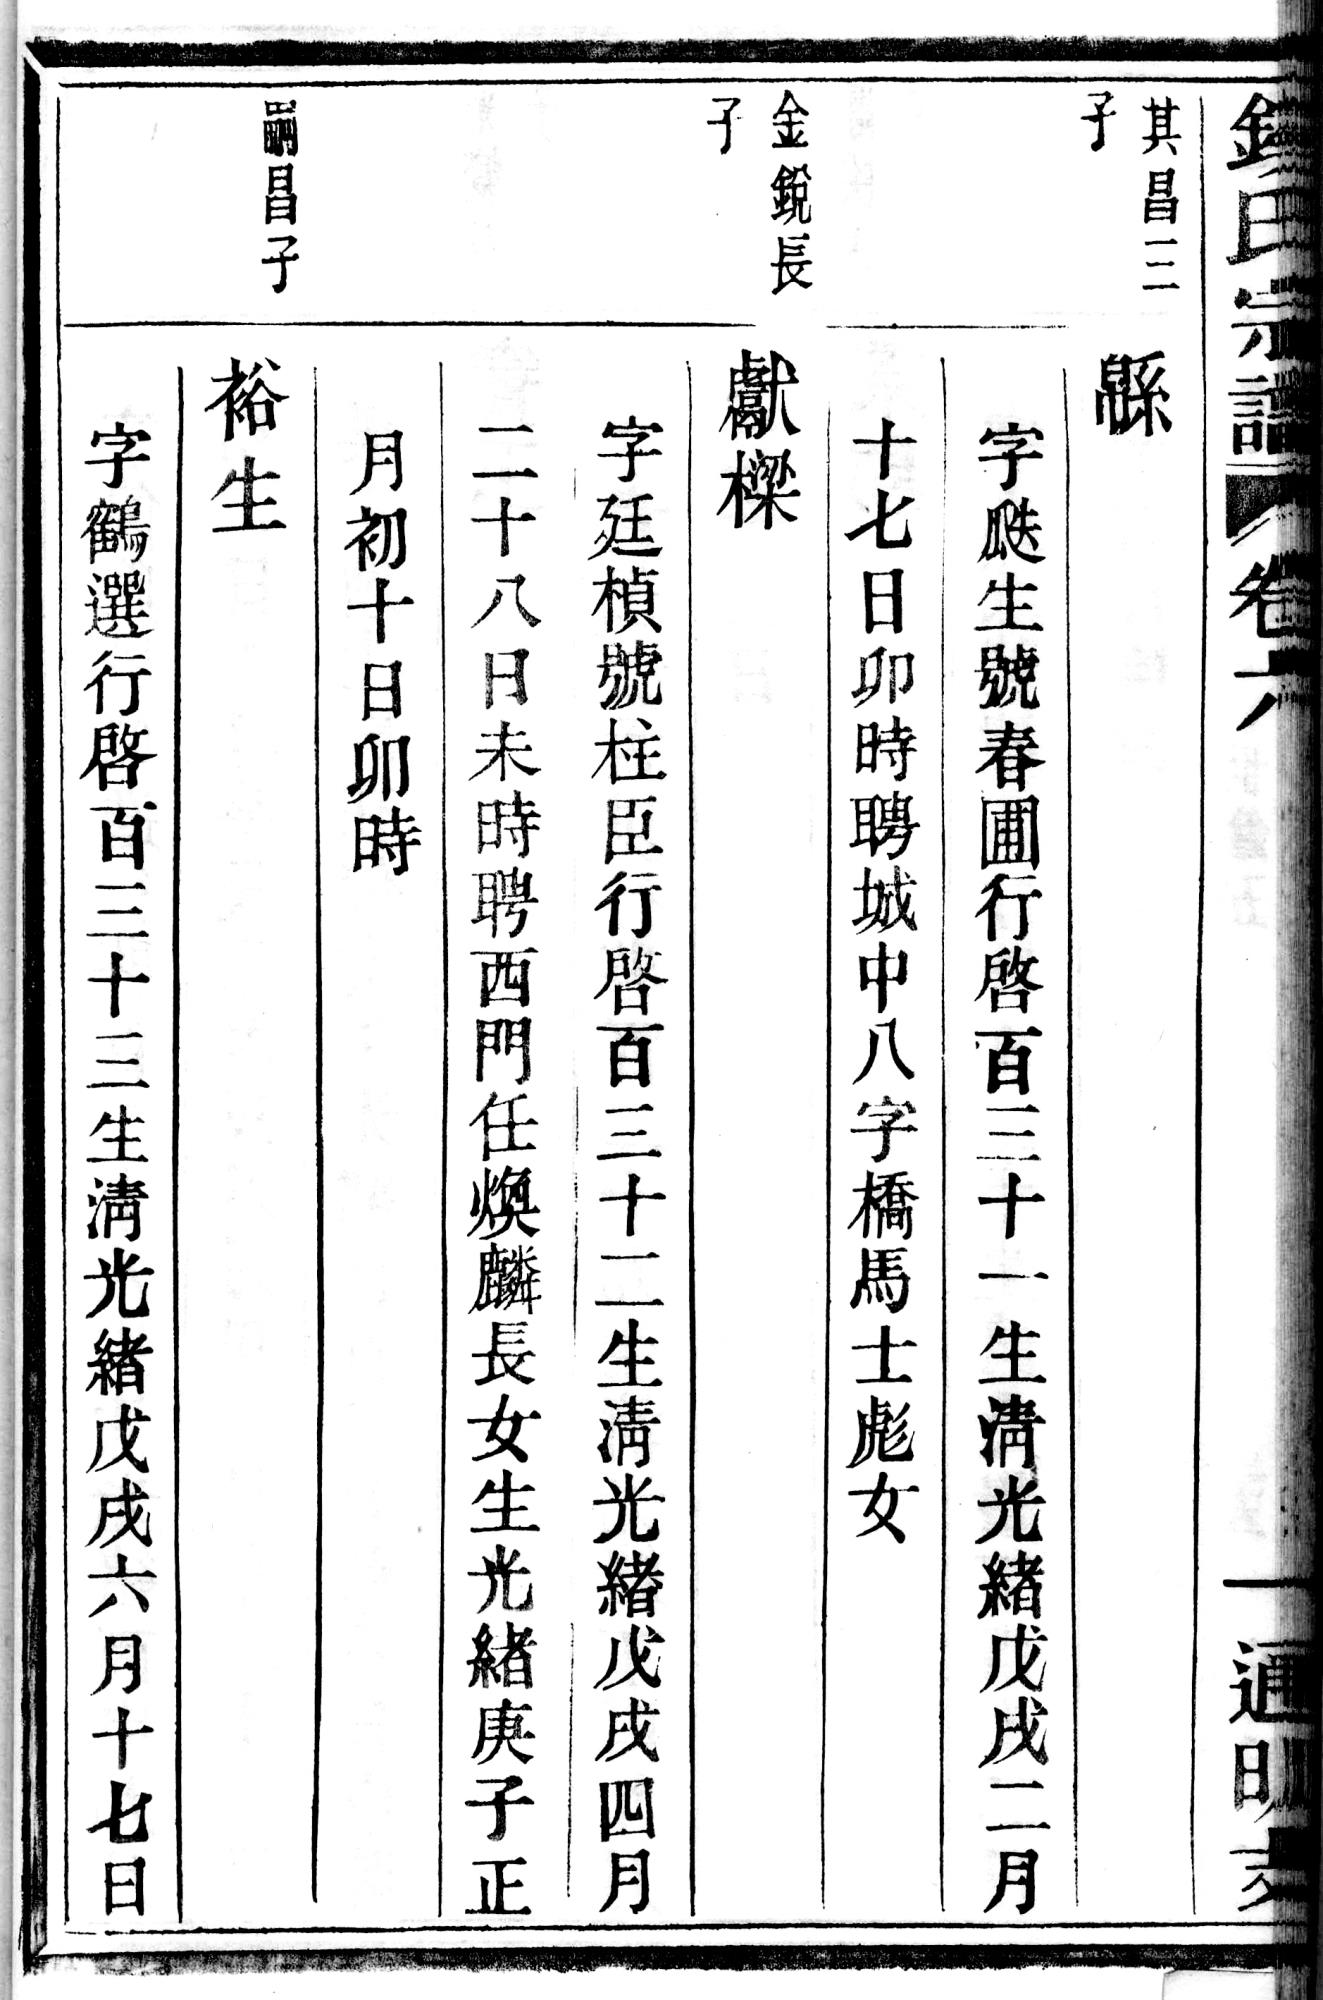 氏宗譜 卷六 一 通明支
其昌三
子
緜
字瓞生號春圃行啓百三十一生淸光緒戊戌二月
十七日卯時聘城中八字橋馬士彪女
金銳長
子
獻樑
字廷楨號柱臣行啓百三十二生淸光緒戊戌四月
二十八日未時聘西門任煥麟長女生光緒庚子正
月初十日卯時
嗣昌子
裕生
字鶴選行啓百三十三生淸光緒戊戌六月十七日